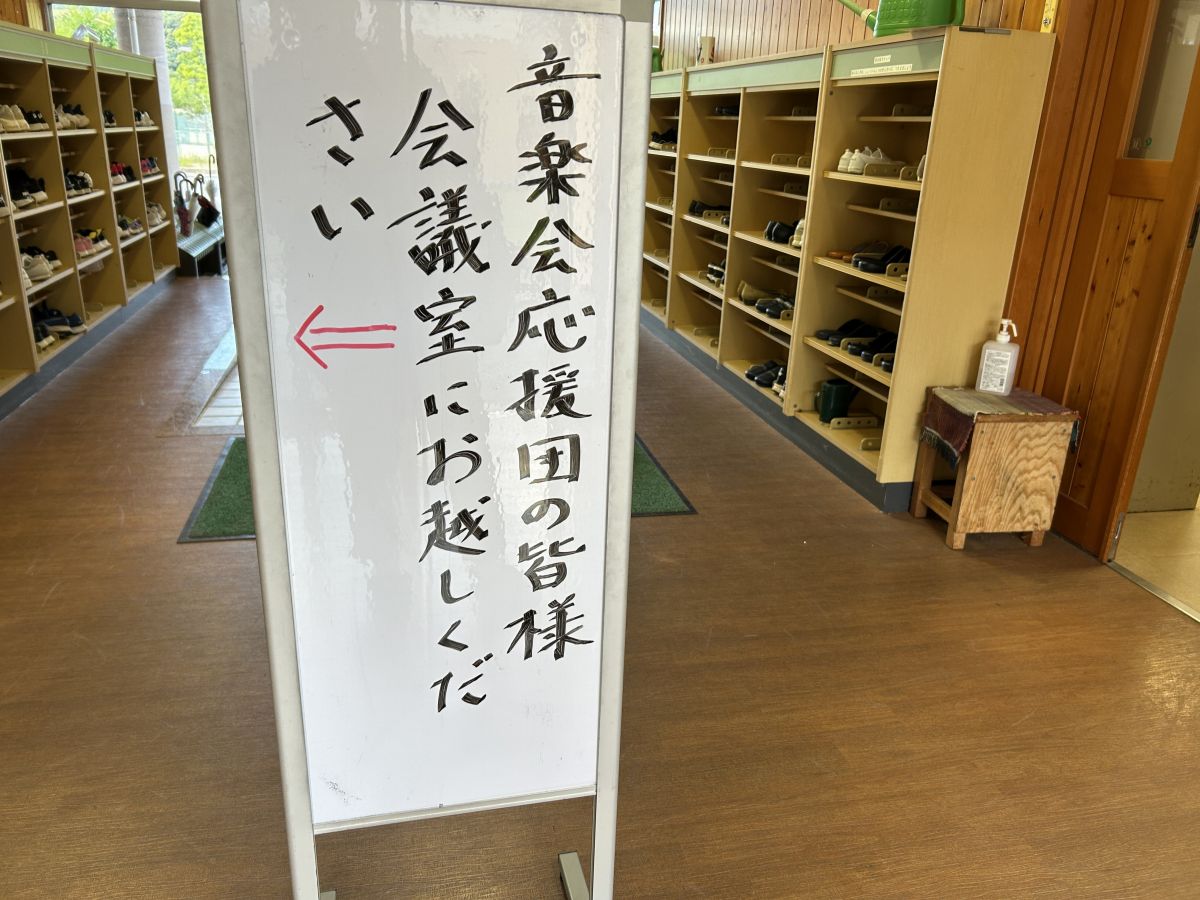 音楽会応援団の皆様
会議室にお越しくだ
さい